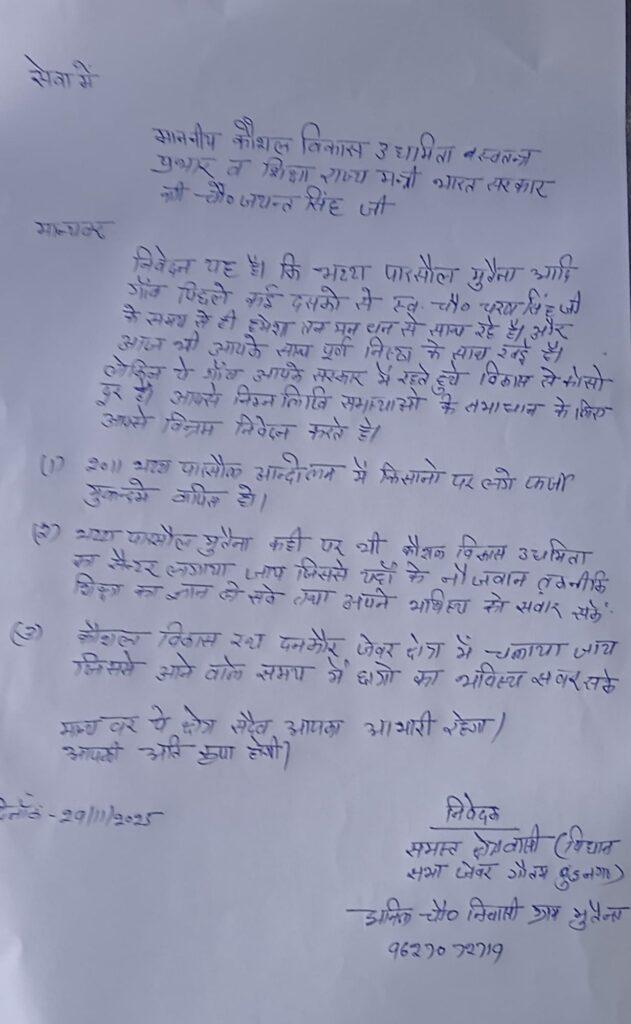 सेवा में
माननीय कौशल विकास उधमिता व स्वतन्त्र
प्रभार व शिक्षा राज्य मन्त्री भारत सरकार
श्री चौ० जयन्त सिंह जी
मान्यवर
निवेदन यह है। कि भट्टा पारसौल मुतैना आदि
गाँव पिछले कई दसको से स्व. चौ० चरण सिंह जी
के समय से ही हमेशा तन मन धन से साथ रहे है। और
आज भी आपके साथ पूर्ण निष्ठा के साथ है।
लेकिन ये गाँव आपके सरकार में रहते हुये विकास से कोसो
दूर है। आपसे निम्न लिखि समाधाओ के समाधान के लिए
आपसे विनम्र निवेदन करते है।
(1) 2011 भट्टा पारसौल आन्दोलन में किसानो पर लगे फर्जी
मुकन्दमे वापिस हो।
(2) भट्टा पारसौल मुतैना कही पर भी कौशल विकास उधमिता
का सैन्टर लगाया जाय जिससे यहाँ के नौजवान तकनीकि
शिक्षा का ज्ञान ले सके तथा अपने भविष्य को सवार सके
(3) कौशल विकास रथ दनकौर जेवर क्षेत्र में चलाया जाय
जिससे आने वाले समय में छात्रो का भविष्य सवर सके
मान्य वर ये क्षेत्र सदैव आपका आभारी रहेगा।
आपकी अति कृपा होगी।
दिनाँक - 29/11/2025
निवेदक
समस्त क्षेत्रवासी (विधान
सभा जेवर गौतम बुद्धनगर)
चौ० निवासी ग्राम मुतैना
9627072719